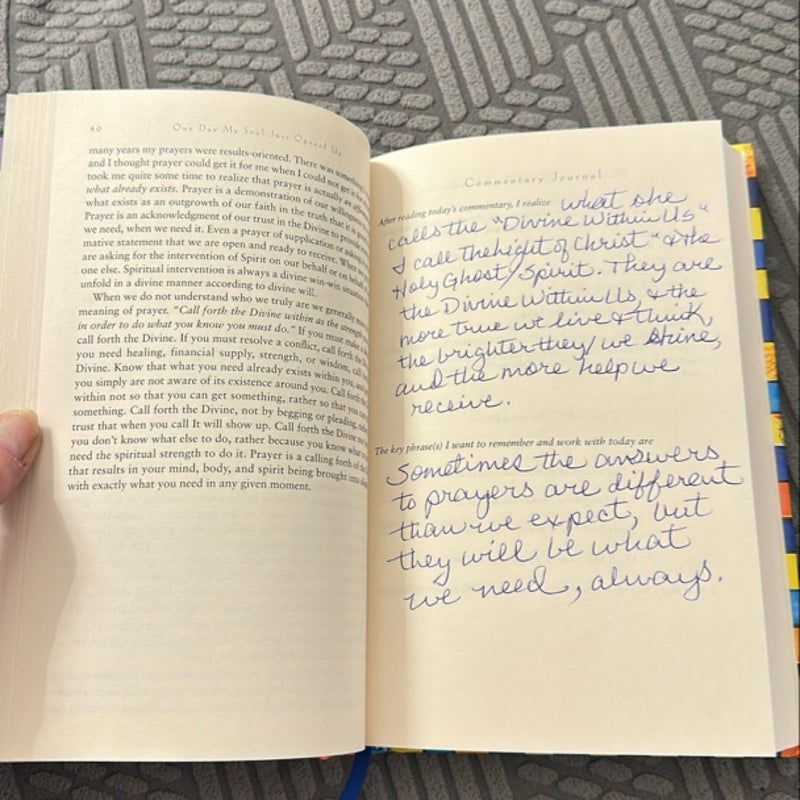 40
One Day My Soul Just Opened Up
many years my prayers were results-oriented. There was something
and I thought prayer could get it for me when I could not get it for
took me quite some time to realize that prayer is actually an
what already exists. Prayer is a demonstration of our willingness
what exists as an outgrowth of our faith in the truth that it is
Prayer is an acknowledgment of our trust in the Divine to provide
we need, when we need it. Even a prayer of supplication or asking
mative statement that we are open and ready to receive. When we
are asking for the intervention of Spirit on our behalf or on behalf
one else. Spiritual intervention is always a divine win-win situation
unfold in a divine manner according to divine will.
When we do not understand who we truly are we generally
meaning of prayer. "Call forth the Divine within as the strength
in order to do what you know you must do." If you must make a
call forth the Divine. If you must resolve a conflict, call forth the
you need healing, financial supply, strength, or wisdom, call
Divine. Know that what you need already exists within you, and
you simply are not aware of its existence around you. Call forth
within not so that you can get something, rather so that you can
something. Call forth the Divine, not by begging or pleading,
trust that when you call It will show up. Call forth the Divine
you don't know what else to do, rather because you know what
need the spiritual strength to do it. Prayer is a calling forth of the
that results in your mind, body, and spirit being brought into
with exactly what you need in any given moment.
Commentary Journal
After reading today's commentary, I realize what she
calls the "Divine Within Us"
I call the Light of Christ" & the
Holy Ghost/Spirit. They are
the Divine Within Us, & the
more true we live & think,
the brighter they/we shine,
and the more help we
receive.
The key phrase(s) I want to remember and work with today are
Sometimes the answers
to prayers are different
than we expect, but
they will be what
we need, always.